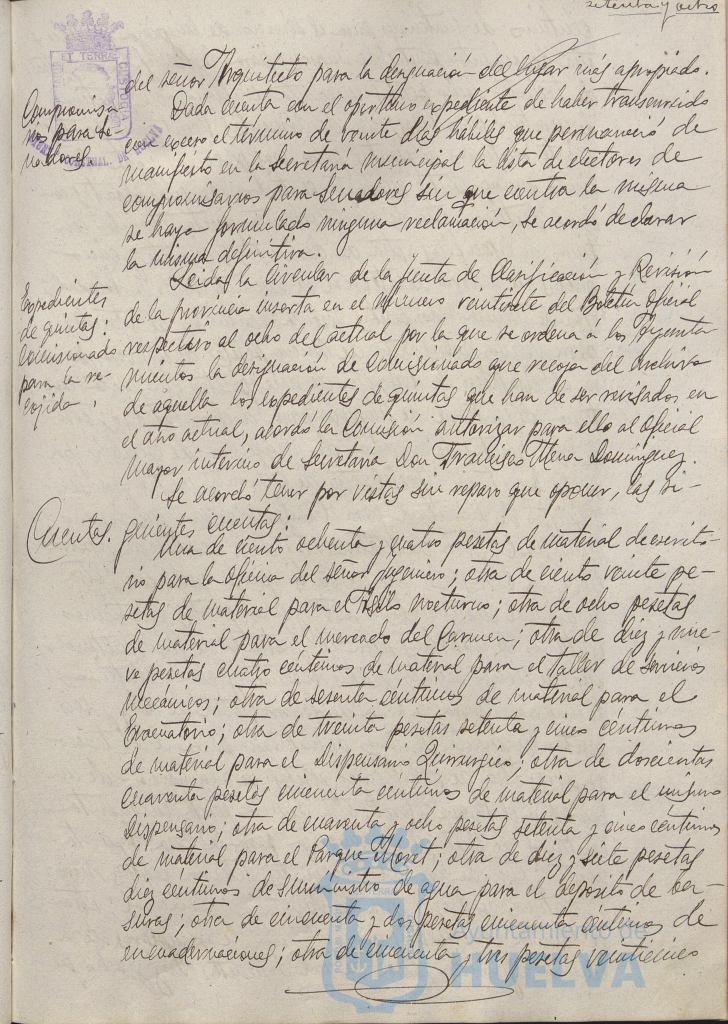 setenta y ocho
del señor Arquitecto para la designación del lugar más apropiado.
Compromisa
rios para Se-
nadores.
Dada cuenta con el oportuno expediente de haber transcurrido
con exceso el término de veinte días hábiles que permaneció de
manifiesto en la Secretaria municipal la lista de electores de
compromisarios para Senadores sin que contra la misma
se haya formulado ninguna reclamación, se acordó declarar
la misma definitiva.
Expedientes
de quintas:
Comisionado
para la re-
cojida.
Leida la Circular de la Junta de Clasificación y Revisión
de la provincia inserta en el número veintisiete del Boletín Oficial
respectivo al ocho del actual por la que se ordena á los Ayunta
mientos la designación de Comisionado que recoja del Archivo
de aquella los expedientes de quintas que han de ser revisados en
el año actual, acordó la Comisión autorizar para ello al Oficial
mayor interino de Secretaría Don Francisco Mena Dominguez.
Se acordó tener por vistas sin reparo que oponer, las si-
Cuentas.
guientes cuentas:
Una de ciento ochenta y cuatro pesetas de material de escrito-
rio para la oficina del señor Ingeniero; otra de ciento veinte pe-
setas de material para el Asilo nocturno; otra de ocho pesetas
de material para el mercado del Carmen; otra de diez y nue-
ve pesetas cuatro centimos de material para el taller de servicios
mecanicos; otra de sesenta céntimos de material para el
Evacuatorio; otra de treinta pesetas setenta y cinco céntimos
de material para el Dispensario Quirurgico; otra de doscientas
cuarenta pesetas cincuenta céntimos de material para el mismo
Dispensario; otra de cuarenta y ocho pesetas setenta y cinco centimos
de material para el Parque Moret; otra de diez y siete pesetas
diez céntimos de suministro de agua para el depósito de ba-
suras; otra de cincuenta y dos pesetas cincuenta céntimos de
encuadernaciones; otra de cincuenta y tres pesetas veinticinco
Ayuntamiento de
HUELVA